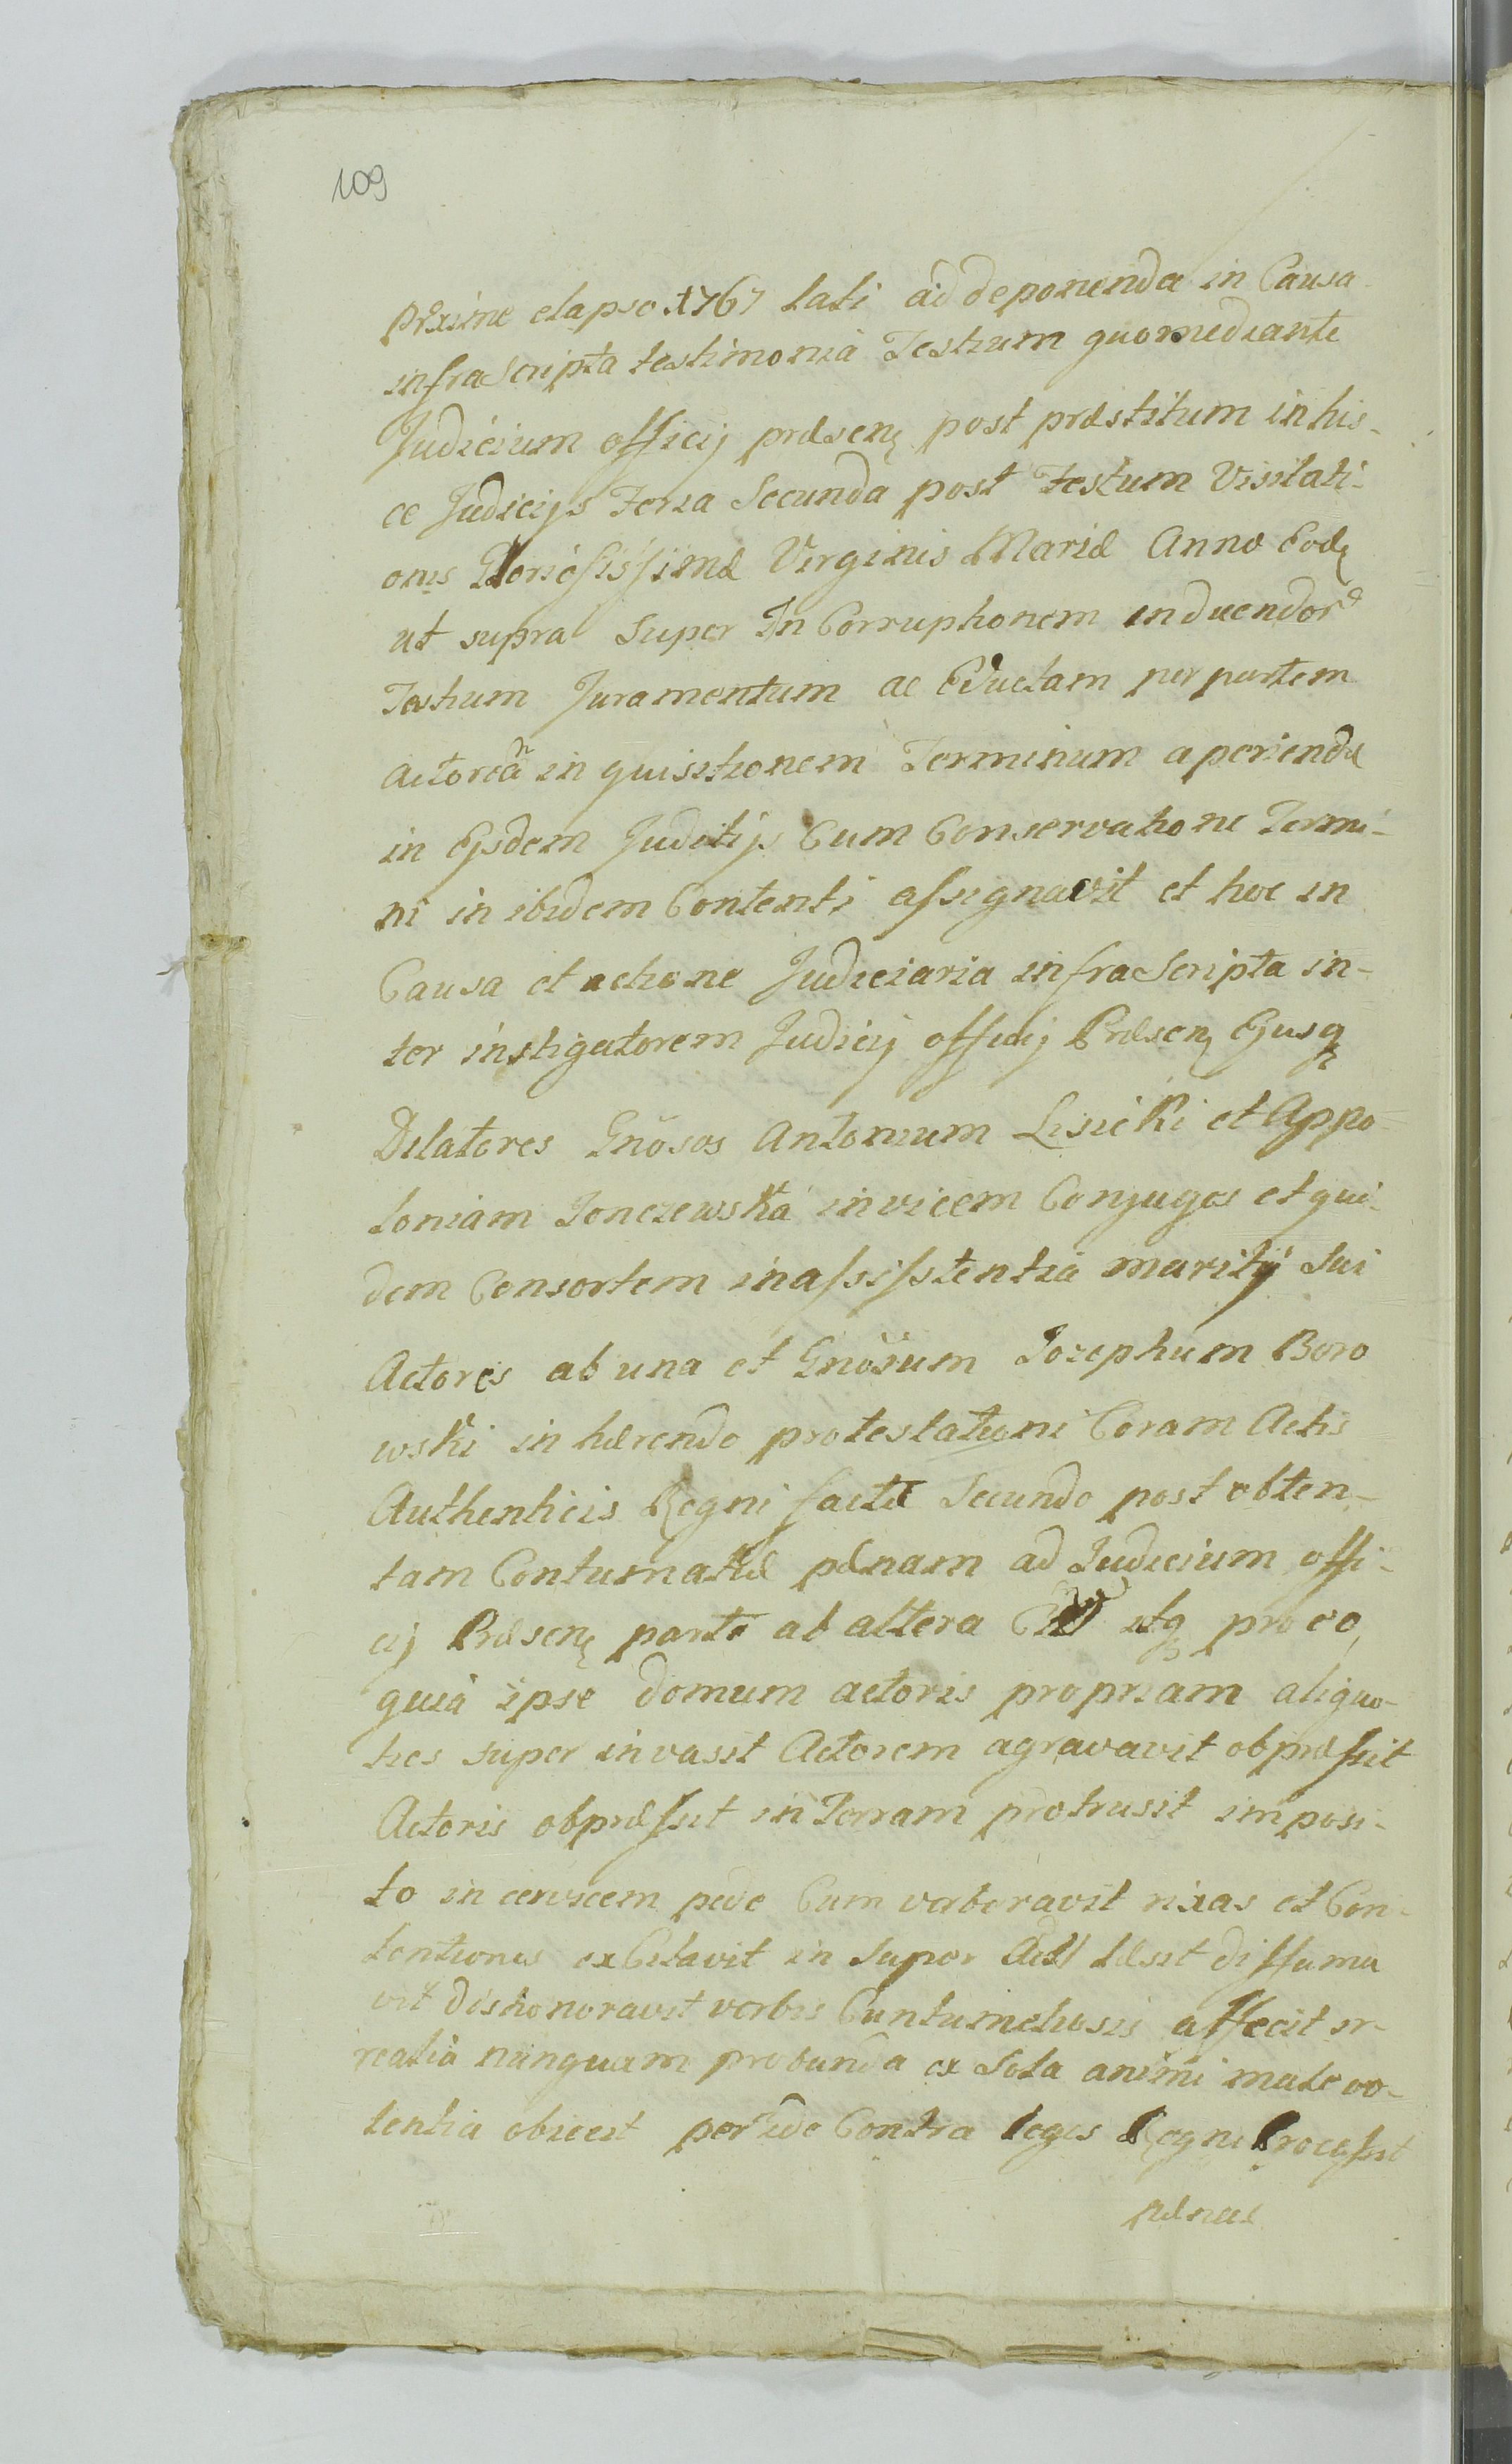 109
prĕxime elapso 1767 lati ad deponenda in Causa
infra Scripta testimonia Testium quo mediante
Judicium officij præsenę post præstitum in his-
ce Judicijs Feria Secunda post Festum Visitati-
onis Gloriosissimæ Virginis Mariæ Anno Eodę
ut supra Super In Corruptionem inducendorͩ
Testium Juramentum ac Eductam per partem
actoreaͫ inquisitionem Terminum aperiendæ
in Ejsdem Juditijs Cum Conservatione Termi-
ni in ibidem Contenti assignavit et hoc in
Causa et actione Judiciaria infra Scripta in-
ter instigatorem Judicij officij Præsenę Ejusq
Delatores Gnosos Antonium Lisicki et Appo-
loniam Jonczewska invicem Conjuges et qui-
dem Consortem in assistentia maritij Sui
Actores ab una et Gnosum Jozephum Boro
wski in hærendo protestationi Coram Actis
Authenticis Regni factæ Secundo post obten-
tam Contumatiæ pænam ad Judicium offi-
cij Præsenę parte ab altera itq pro eo,
quia ipse domum actoris propriam aliquo-
ties super invasit Actorem agravavit obpræssit
Actoris obpræssit in Terram protrusit imposi-
to in cervicem pede Cum verberavit rixas et Con-
tentiones exCitavit in super læsit diffama
vit dishonoravit verbis Cuntumeliosis affecit ir-
realia nunquam probanda ex Sola animi malevo-
lentia obiecit per Ide Contra leges Regni Processit
pænas